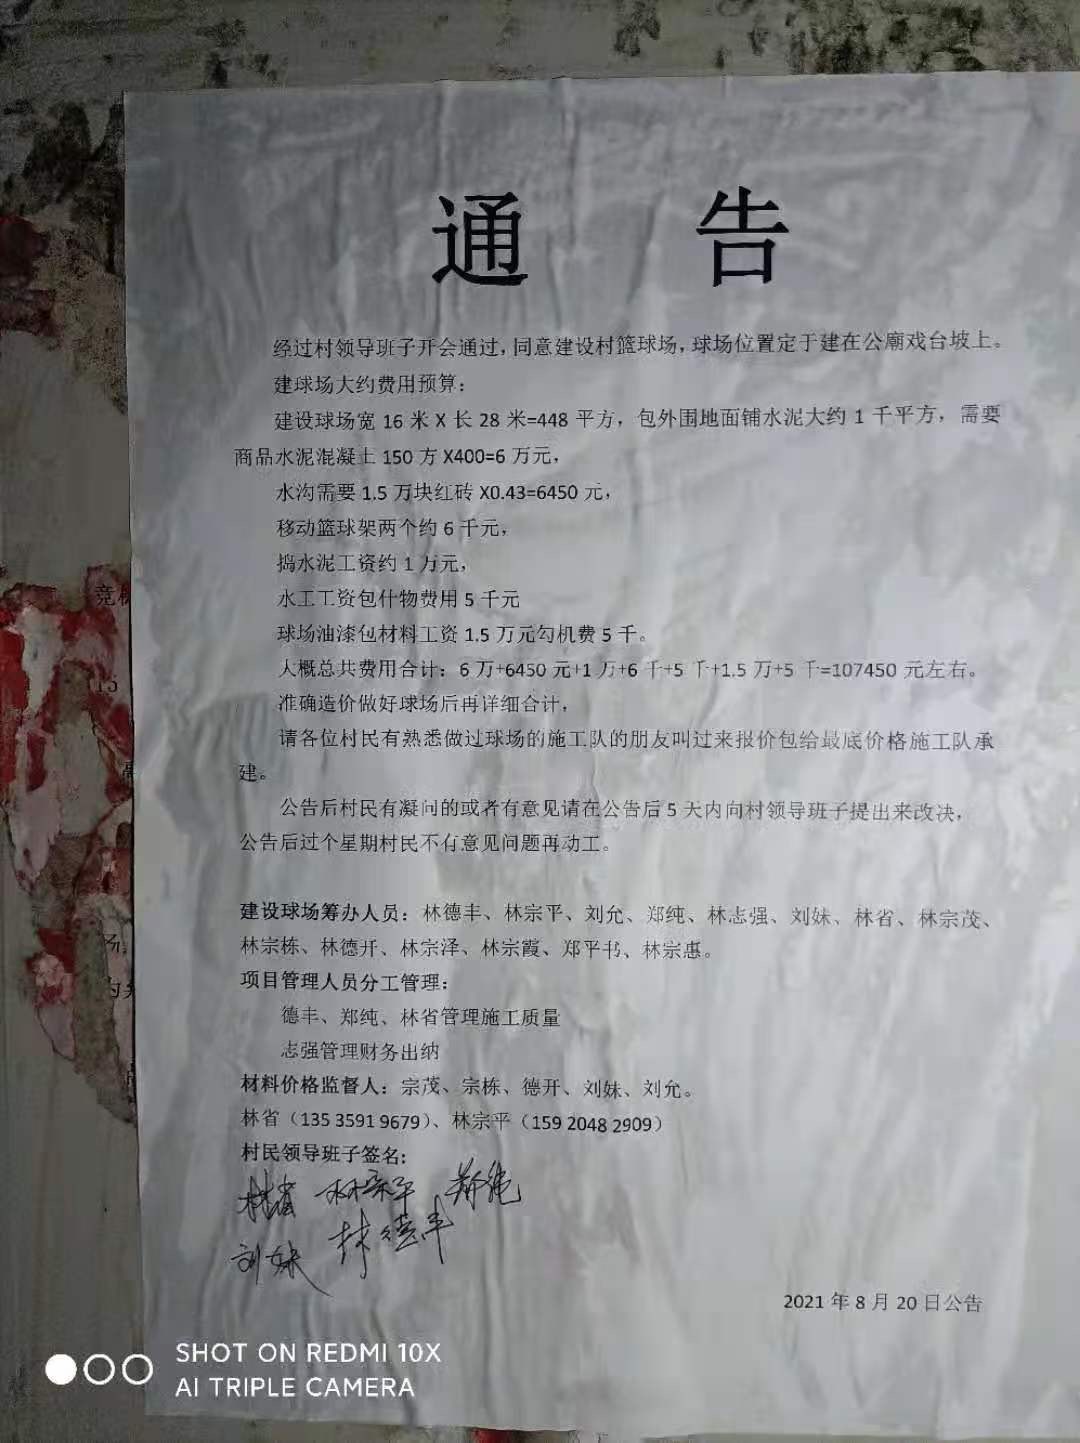 通 告
经过村领导班子开会通过，同意建设村篮球场，球场位置定于建在公廟戏台坡上。
建球场大约费用预算：
建设球场宽 16 米 X 长 28 米=448 平方，包外围地面铺水泥大约 1 千平方，需要
商品水泥混凝土 150 方 X400=6 万元，
水沟需要 1.5 万块红砖 X0.43=6450 元，
移动篮球架两个约 6 千元，
捣水泥工资约 1 万元，
水工工资包什物费用 5 千元
球场油漆包材料工资 1.5 万元勾机费 5 千。
大概总共费用合计：6 万+6450 元+1 万+6 千+5 千+1.5 万+5 千=107450 元左右。
准确造价做好球场后再详细合计，
请各位村民有熟悉做过球场的施工队的朋友叫过来报价包给最底价格施工队承
建。
公告后村民有凝问的或者有意见请在公告后 5 天内向村领导班子提出来改决，
公告后过个星期村民不有意见问题再动工。
建设球场筹办人员：林德丰、林宗平、刘允、郑纯、林志强、刘妹、林省、林宗茂、
林宗栋、林德开、林宗泽、林宗霞、郑平书、林宗惠。
项目管理人员分工管理：
德丰、郑纯、林省管理施工质量
志强管理财务出纳
材料价格监督人：宗茂、宗栋、德开、刘妹、刘允。
林省（135 3591 9679）、林宗平（159 2048 2909）
村民领导班子签名：
林省 林宗平 郑纯
刘妹 林德丰
2021 年 8 月 20 日公告
SHOT ON REDMI 10X
AI TRIPLE CAMERA